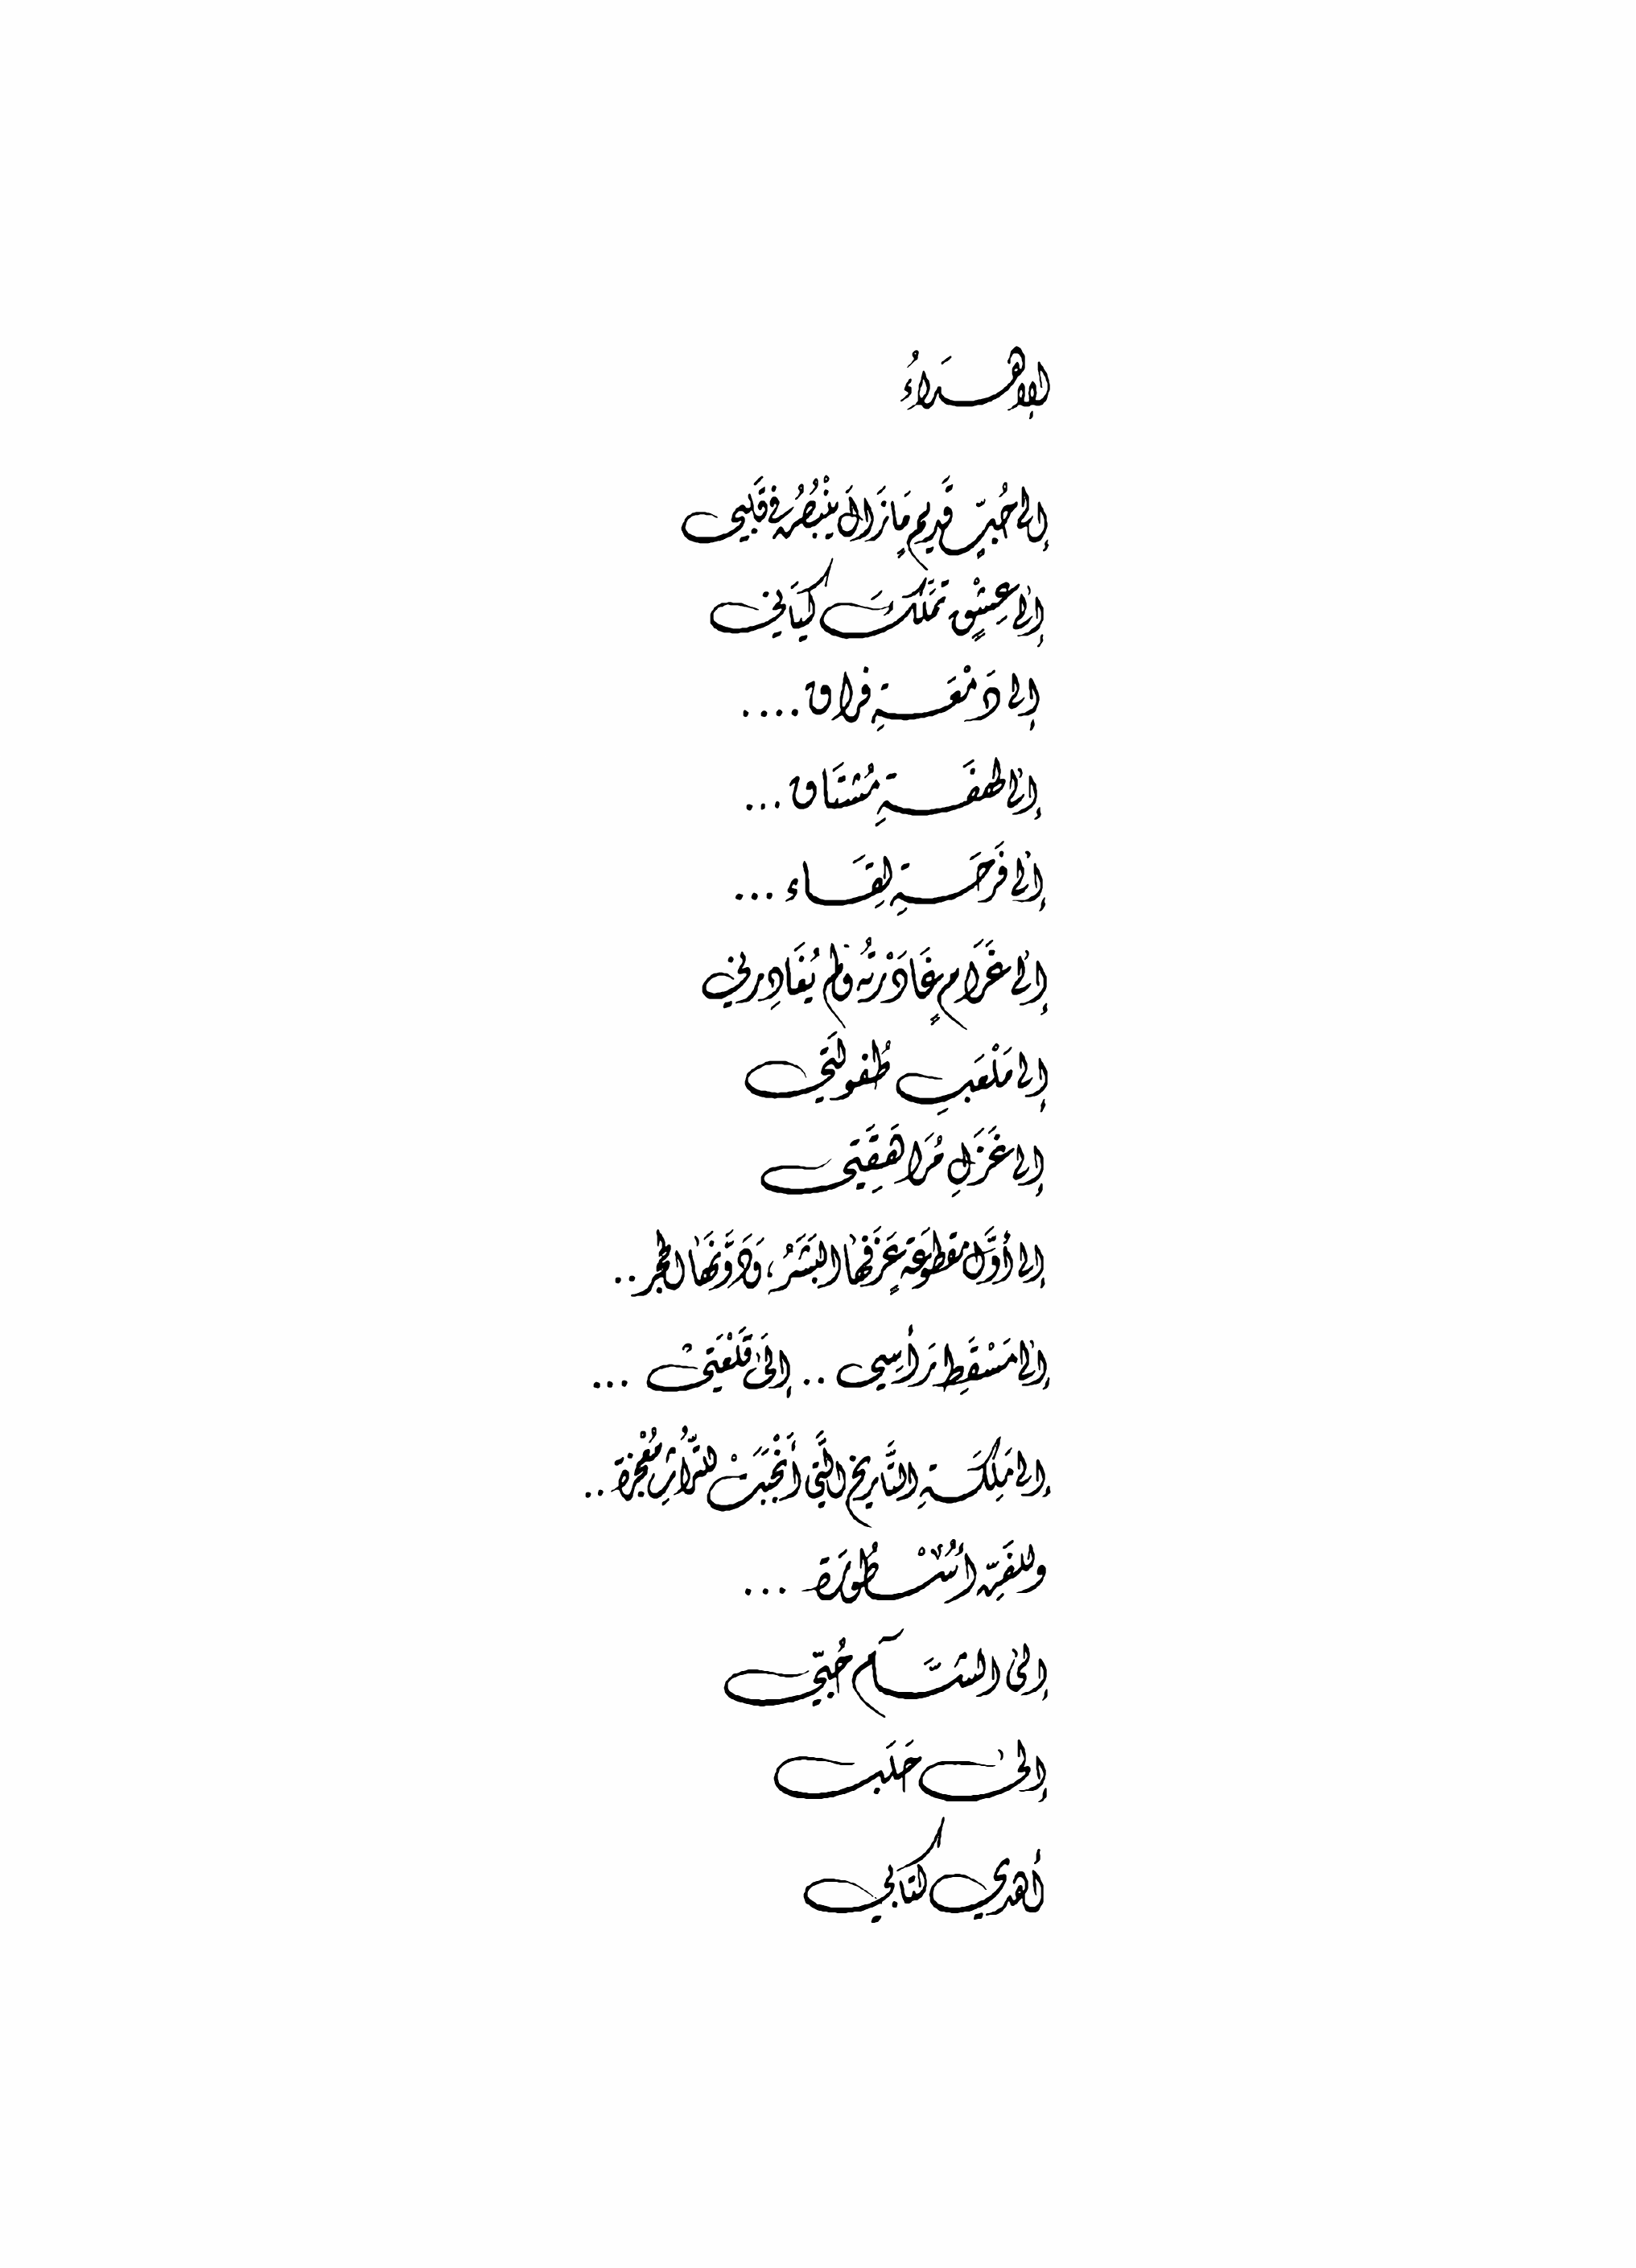 الإهـداءُ
إلى حُبٍّ قَديمٍ مَا زَالَ يَنْبُضُ في قَلبي
إلى عِشْقٍ تَمَلَّكَ كيَاني
إلى دَمْعَـةِ فراق....
إلى لهفَـةِ مُشتَاق...
إلى فَرَحَـةِ لِقَـاء...
إلى غَرَامٍ غَادَرْتُه ولم يُغَادِرني
إلى مَلْعَبِ طُفولَتي
إلى غَزَلِ مُرَاهَقِتي
إلى أوَّل مقطوعَةٍ عَزَفَها البَشَرُ، وَدَوَّنَهَا الحجر..
إلى مَسْقَطِ رَأسِي.. إلَى قَلْعَتيْ...
إلى مَلِكَـةِ التَّاريخ الَّتي أَنْجَبَتْ للتُّراثِ مُعْجزة..
وللفَنِّ أُسْـطُورَة...
إلى الشَّـآم حُبّي
إلى حَلَب
أهدي كتَابي